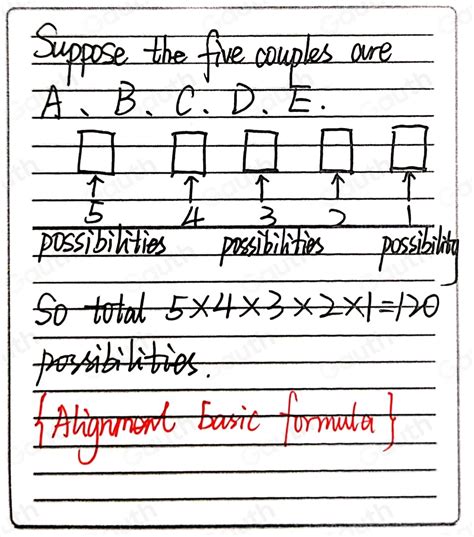 Suppose the five couples are
A、B、C、D、E.
5 4 3 2 1
possibilities possibilities possibility
So total 5×4×3×2×1=120
possibilities.
{Alignment basic formula}